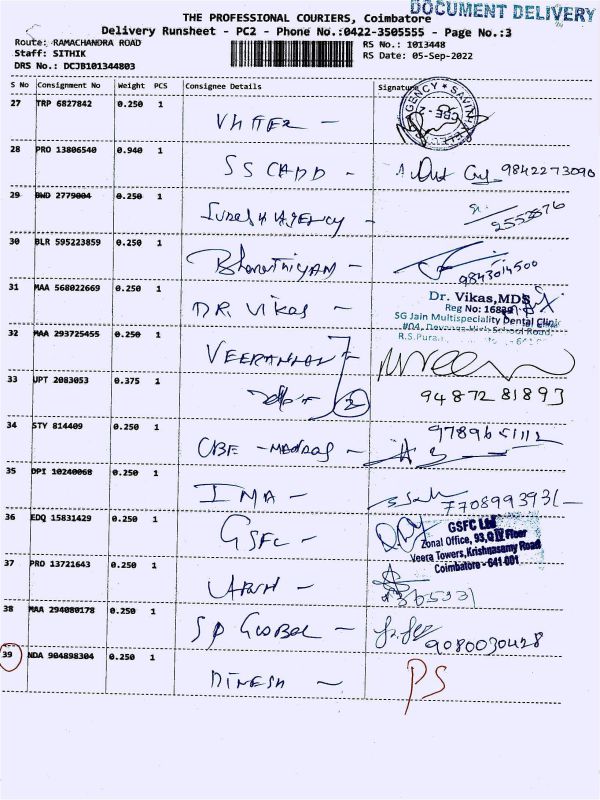 DOCUMENT DELIVERY
THE PROFESSIONAL COURIERS, Coimbatore
Delivery Runsheet - PC2 - Phone No.:0422-3505555 - Page No.:3
Route: RAMACHANDRA ROAD RS No.: 1013448
Staff: SITHIK RS Date: 05-Sep-2022
DRS No.: DCJB101344803
S No Consignment No Weight PCS Consignee Details Signature
27 TRP 6827842 0.250 1
28 PRO 13806540 0.940 1
SS CADD - 9842273090
29 BWD 2779004 0.250 1
AGENCY -
30 BLR 595223859 0.250 1
Bharathiyam -
31 MAA 568022669 0.250 1
DR. Vikas - Dr. Vikas,MDS
Reg No:
SG Jain Multispeciality Dental Clinic
R.S.Puram
32 MAA 293725455 0.250 1
33 UPT 2083053 0.375 1
2 9487281893
34 STY 814409 0.250 1
CBE - MADRAS -
35 DPI 10240068 0.250 1
IMA -
36 EDQ 15831429 0.250 1
GSFC - GSFC Ltd
Zonal Office, 93, Floor
Veera Towers,Krishnasamy Road
Coimbatore - 641 001
37 PRO 13721643 0.250 1
38 MAA 294080178 0.250 1
SP GLOBAL - 9080030428
39 NDA 904898304 0.250 1
DINESH - PS